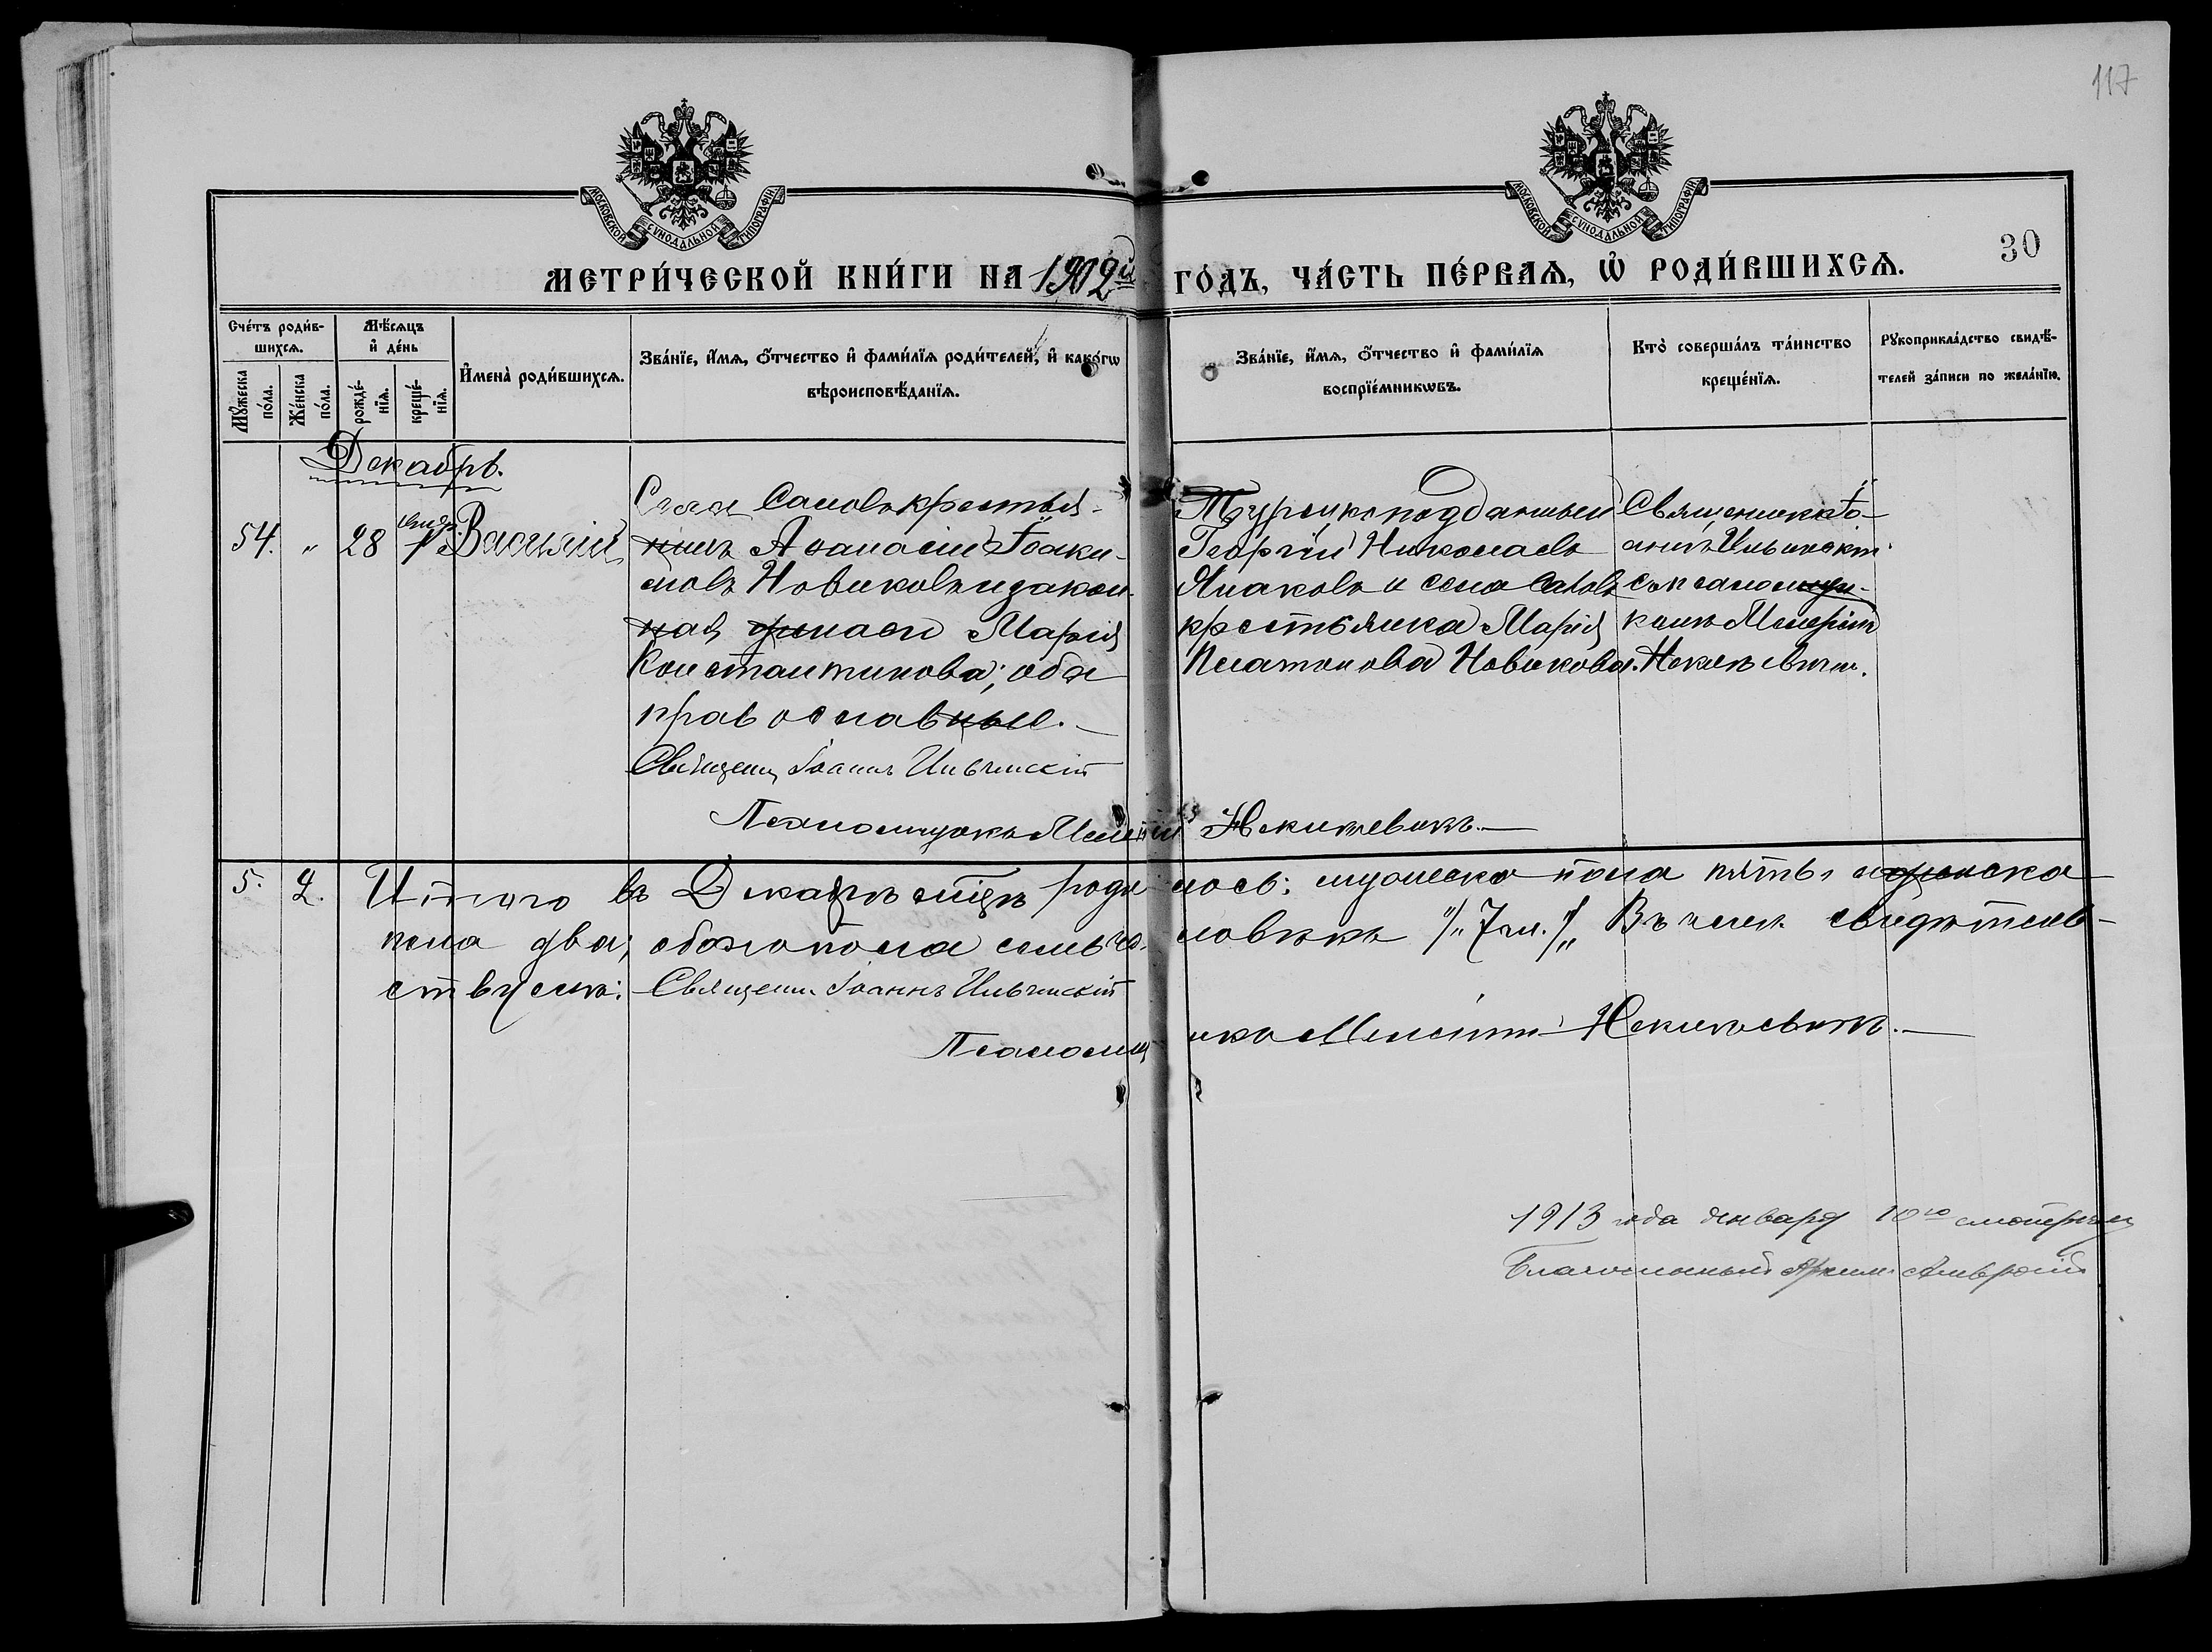 117
МОСКОВСКОЙ СѴНОДАЛЬНОЙ ТИПОГРАФІИ
МОСКОВСКОЙ СѴНОДАЛЬНОЙ ТИПОГРАФІИ
30
МЕТРИ́ЧЕСКОЙ КНИ́ГИ НА 1912й ГО́ДЪ, ЧА́СТЬ ПЕ́РВАѦ, Ѡ РОДИ́ВШИХСѦ.
Сче́тъ роди́в-
шихсѧ.
Мꙋ́жеска по́ла.
Же́нска по́ла.
Мѣ́сѧцъ
и҆ де́нь
рожде́-
нїѧ.
креще́-
нїѧ.
И҆мена̀ роди́вшихсѧ.
Зва́нїе, и҆́мѧ, ѻ҆́тчество и҆ фами́лїѧ роди́телей, и҆ како́гѡ
вѣроисповѣ́данїѧ.
Зва́нїе, и҆́мѧ, ѻ҆́тчество и҆ фами́лїѧ
воспрїе́мникѡвъ.
Кто̀ соверша́лъ та́инство
креще́нїѧ.
Рꙋкоприкла́дство свидѣ́-
телей за́писи по жела́нїю.
Декабрь.
54. " 28 Василій
Села Саловъ крестья-
нинъ Аѳанасій Іоаки-
мовъ Новиковъ и закон-
ная жена его Марія
Константинова; оба
православные.
Священ. Іоаннъ Ильчинскій
Псаломщикъ Никитевичъ.
Турецко подданный
Георгій Николаевъ
Янаковъ и села Саловъ
крестьянка Марія
Платонова Новикова.
Священникъ Іо-
аннъ Ильчинскій
съ псаломщи-
комъ
5. 2. Итого въ Декабрѣ мцѣ родилось: мужеска пола пять и женска
пола два; обоего пола семь человѣкъ "/"7 чел."/" Въ чемъ свидѣтель-
ствуемъ: Священн. Іоаннъ Ильчинскій
Псаломщикъ Никитевичъ.
1913 года января 10го смотрѣлъ
Благочинный Архим. Амвросій